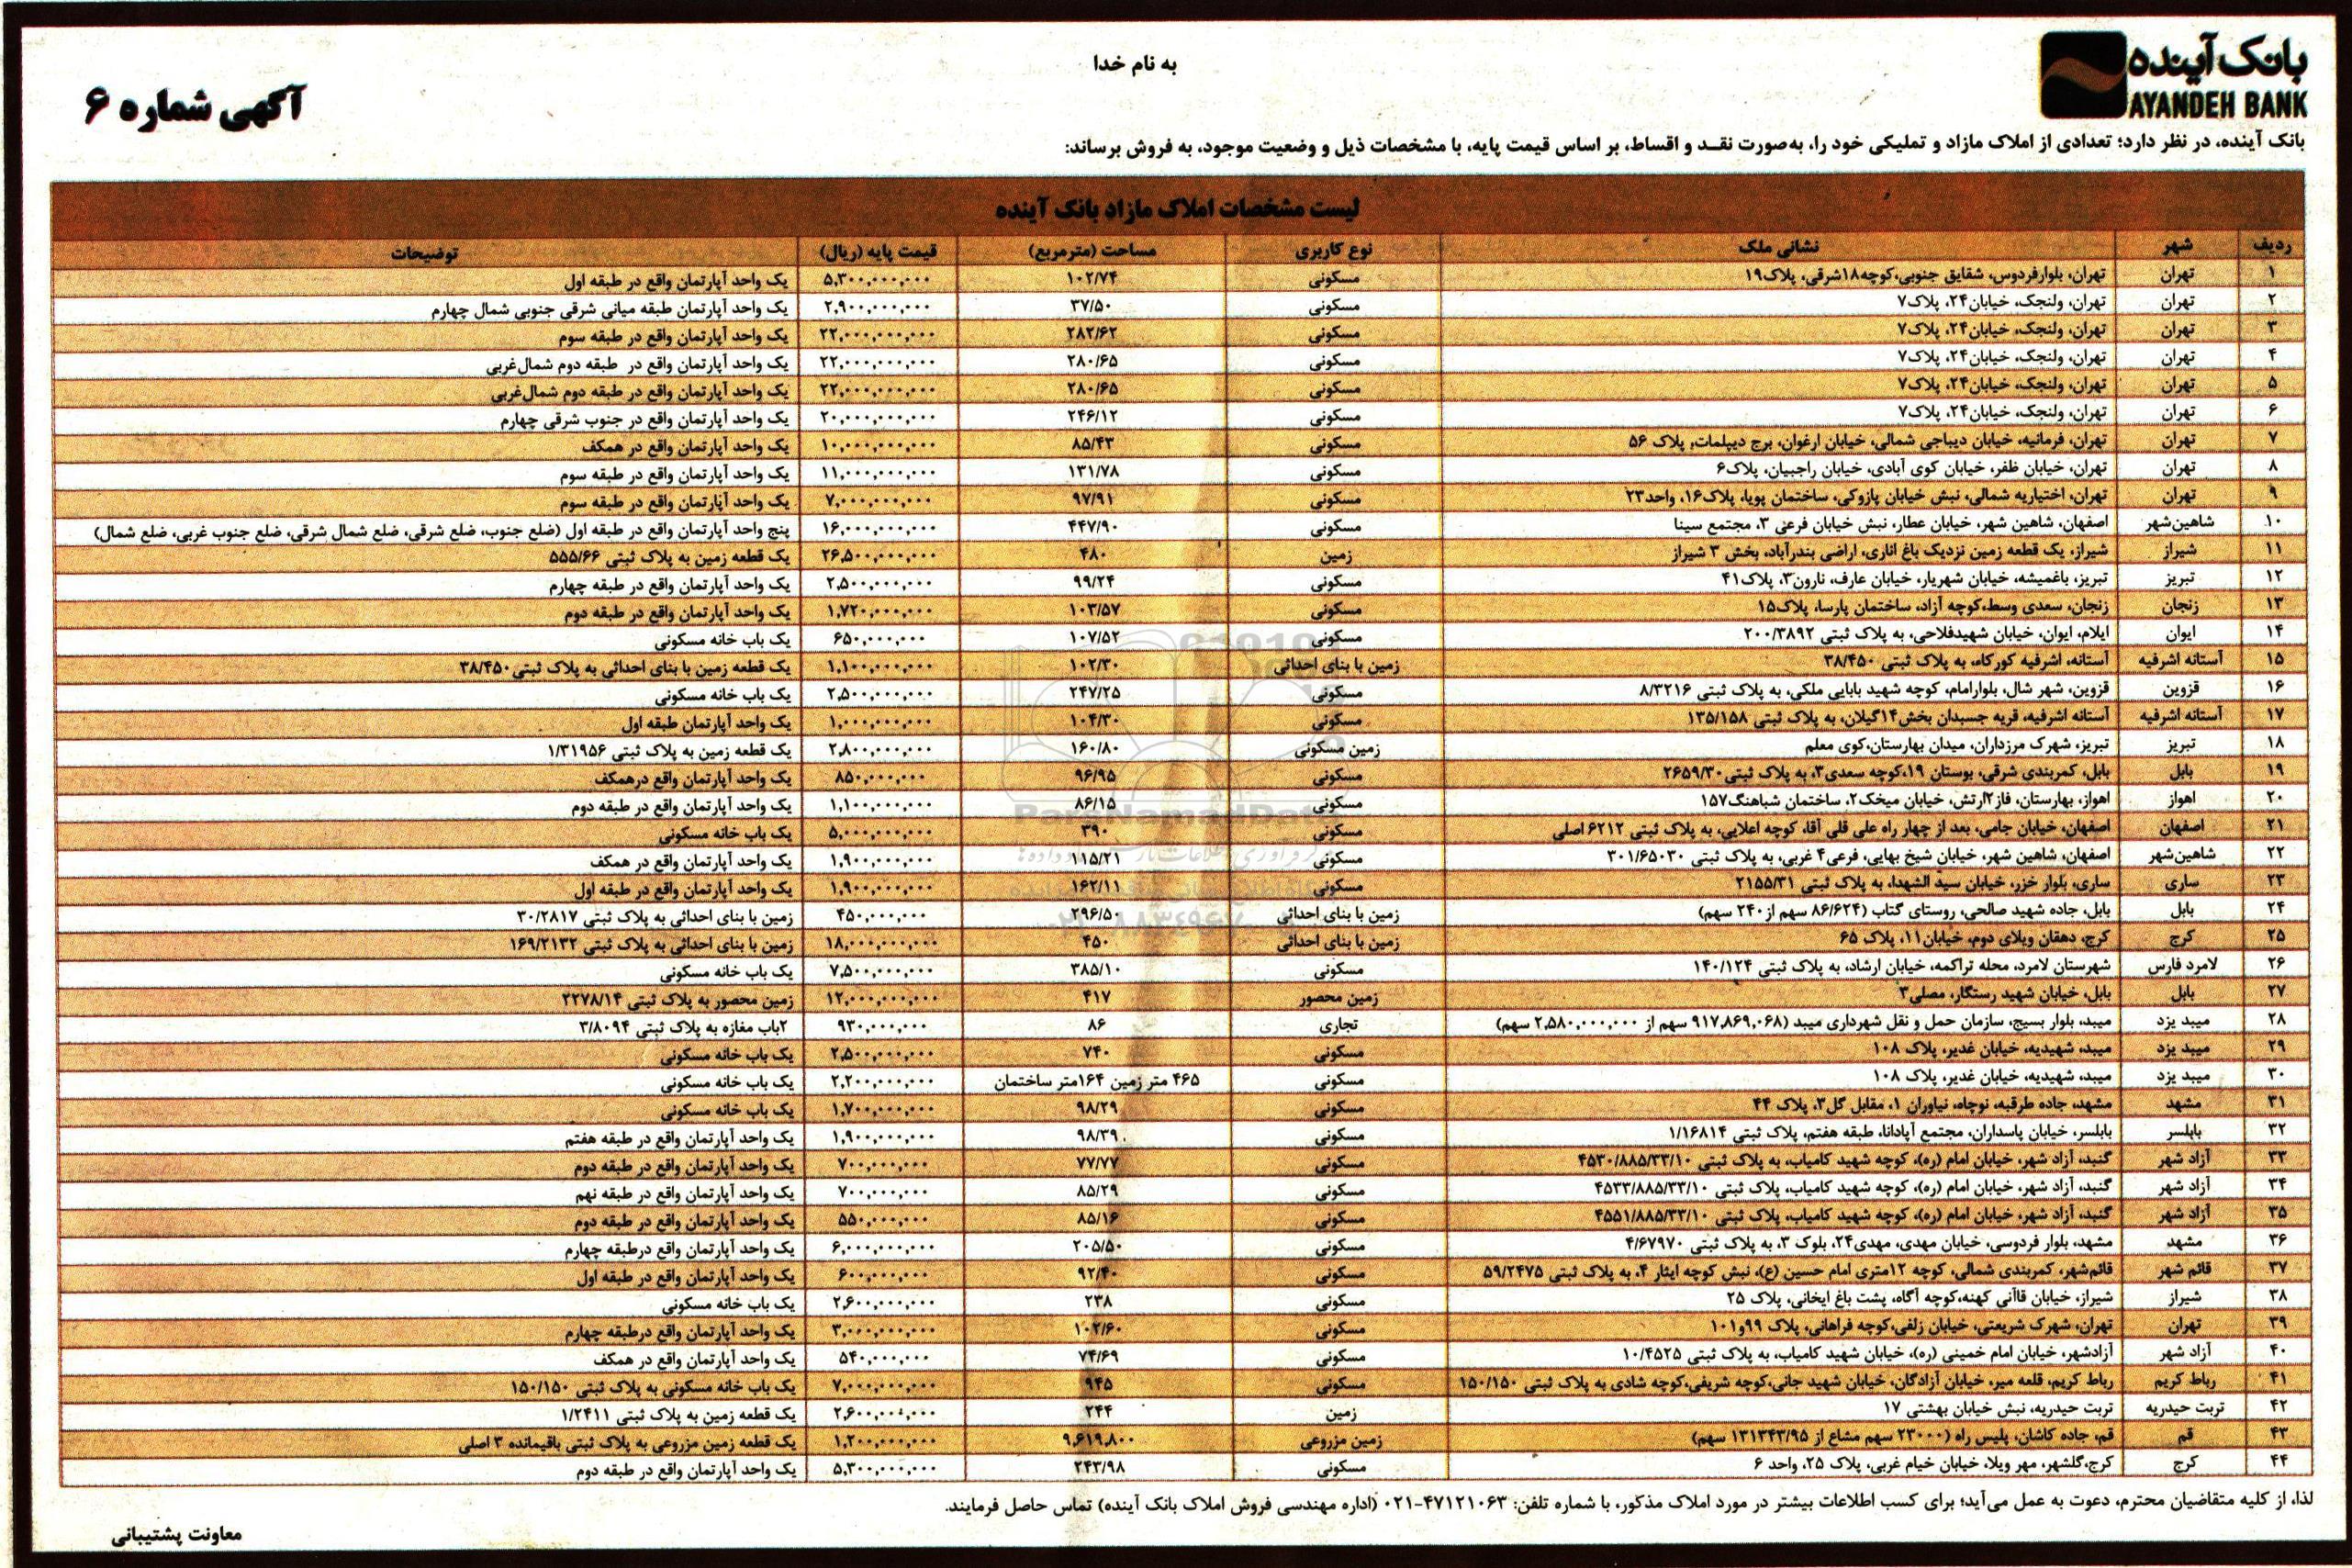 بانک آینده
AYANDEH BANK
به نام خدا
آگهی شماره ۶
بانک آینده، در نظر دارد؛ تعدادی از املاک مازاد و تملیکی خود را، به‌صورت نقـد و اقساط، بر اساس قیمت پایه، با مشخصات ذیل و وضعیت موجود، به فروش برساند:
لیست مشخصات املاک مازاد بانک آینده
ردیف شهر نشانی ملک نوع کاربری مساحت (مترمربع) قیمت پایه (ریال) توضیحات
۱ تهران تهران، بلوارفردوس، شقایق جنوبی،کوچه۱۸شرقی، پلاک۱۹ مسکونی ۱۰۲/۷۴ ۵,۳۰۰,۰۰۰,۰۰۰ یک واحد آپارتمان واقع در طبقه اول
۲ تهران تهران، ولنجک، خیابان۲۴، پلاک۷ مسکونی ۳۷/۵۰ ۲,۹۰۰,۰۰۰,۰۰۰ یک واحد آپارتمان طبقه میانی شرقی جنوبی شمال چهارم
۳ تهران تهران، ولنجک، خیابان۲۴، پلاک۷ مسکونی ۲۸۲/۶۲ ۲۲,۰۰۰,۰۰۰,۰۰۰ یک واحد آپارتمان واقع در طبقه سوم
۴ تهران تهران، ولنجک، خیابان۲۴، پلاک۷ مسکونی ۲۸۰/۶۵ ۲۲,۰۰۰,۰۰۰,۰۰۰ یک واحد آپارتمان واقع در طبقه دوم شمال‌غربی
۵ تهران تهران، ولنجک، خیابان۲۴، پلاک۷ مسکونی ۲۸۰/۶۵ ۲۲,۰۰۰,۰۰۰,۰۰۰ یک واحد آپارتمان واقع در طبقه دوم شمال‌غربی
۶ تهران تهران، ولنجک، خیابان۲۴، پلاک۷ مسکونی ۲۴۶/۱۲ ۲۰,۰۰۰,۰۰۰,۰۰۰ یک واحد آپارتمان واقع در جنوب شرقی چهارم
۷ تهران تهران، فرمانیه، خیابان دیباجی شمالی، خیابان ارغوان، برج دیپلمات، پلاک ۵۶ مسکونی ۸۵/۴۳ ۱۰,۰۰۰,۰۰۰,۰۰۰ یک واحد آپارتمان واقع در همکف
۸ تهران تهران، خیابان ظفر، خیابان کوی آبادی، خیابان راجبیان، پلاک۶ مسکونی ۱۳۱/۷۸ ۱۱,۰۰۰,۰۰۰,۰۰۰ یک واحد آپارتمان واقع در طبقه سوم
۹ تهران تهران، اختیاریه شمالی، نبش خیابان پازوکی، ساختمان پویا، پلاک۱۶، واحد۲۳ مسکونی ۹۷/۹۱ ۷,۰۰۰,۰۰۰,۰۰۰ یک واحد آپارتمان واقع در طبقه سوم
۱۰ شاهین‌شهر اصفهان، شاهین شهر، خیابان عطار، نبش خیابان فرعی ۳، مجتمع سینا مسکونی ۴۴۷/۹۰ ۱۶,۰۰۰,۰۰۰,۰۰۰ پنج واحد آپارتمان واقع در طبقه اول (ضلع جنوب، ضلع شرقی، ضلع شمال شرقی، ضلع جنوب غربی، ضلع شمال)
۱۱ شیراز شیراز، یک قطعه زمین نزدیک باغ اناری، اراضی بندرآباد، بخش ۳ شیراز زمین ۴۸۰ ۲۶,۵۰۰,۰۰۰,۰۰۰ یک قطعه زمین به پلاک ثبتی ۵۵۵/۶۶
۱۲ تبریز تبریز، باغمیشه، خیابان شهریار، خیابان عارف، نارون۳، پلاک۴۱ مسکونی ۹۹/۲۴ ۲,۵۰۰,۰۰۰,۰۰۰ یک واحد آپارتمان واقع در طبقه چهارم
۱۳ زنجان زنجان، سعدی وسط،کوچه آزاد، ساختمان پارسا، پلاک۱۵ مسکونی ۱۰۳/۵۷ ۱,۷۲۰,۰۰۰,۰۰۰ یک واحد آپارتمان واقع در طبقه دوم
۱۴ ایوان ایلام، ایوان، خیابان شهیدفلاحی، به پلاک ثبتی ۲۰۰/۳۸۹۲ مسکونی ۱۰۷/۵۲ ۶۵۰,۰۰۰,۰۰۰ یک باب خانه مسکونی
۱۵ آستانه اشرفیه آستانه، اشرفیه کورکاه، به پلاک ثبتی ۳۸/۴۵۰ زمین با بنای احداثی ۱۰۲/۳۰ ۱,۱۰۰,۰۰۰,۰۰۰ یک قطعه زمین با بنای احداثی به پلاک ثبتی۳۸/۴۵۰
۱۶ قزوین قزوین، شهر شال، بلوارامام، کوچه شهید بابایی ملکی، به پلاک ثبتی ۸/۳۲۱۶ مسکونی ۲۴۷/۲۵ ۲,۵۰۰,۰۰۰,۰۰۰ یک باب خانه مسکونی
۱۷ آستانه اشرفیه آستانه اشرفیه، قریه جسیدان بخش۱۴گیلان، به پلاک ثبتی ۱۳۵/۱۵۸ مسکونی ۱۰۴/۳۰ ۱,۰۰۰,۰۰۰,۰۰۰ یک واحد آپارتمان طبقه اول
۱۸ تبریز تبریز، شهرک مرزداران، میدان بهارستان،کوی معلم زمین مسکونی ۱۶۰/۸۰ ۲,۸۰۰,۰۰۰,۰۰۰ یک قطعه زمین به پلاک ثبتی ۱/۳۱۹۵۶
۱۹ بابل بابل، کمربندی شرقی، بوستان ۱۹،کوچه سعدی۳، به پلاک ثبتی۲۶۵۹/۳۰ مسکونی ۹۶/۹۵ ۸۵۰,۰۰۰,۰۰۰ یک واحد آپارتمان واقع درهمکف
۲۰ اهواز اهواز، بهارستان، فاز۲ارتش، خیابان میخک۲، ساختمان شباهنگ۱۵۷ مسکونی ۸۶/۱۵ ۱,۱۰۰,۰۰۰,۰۰۰ یک واحد آپارتمان واقع در طبقه دوم
۲۱ اصفهان اصفهان، خیابان جامی، بعد از چهار راه علی قلی آقا، کوچه اعلایی، به پلاک ثبتی ۶۲۱۲اصلی مسکونی ۳۹۰ ۵,۰۰۰,۰۰۰,۰۰۰ یک باب خانه مسکونی
۲۲ شاهین‌شهر اصفهان، شاهین شهر، خیابان شیخ بهایی، فرعی۴ غربی، به پلاک ثبتی ۳۰۱/۶۵۰۳۰ مسکونی ۱۱۵/۲۱ ۱,۹۰۰,۰۰۰,۰۰۰ یک واحد آپارتمان واقع در همکف
۲۳ ساری ساری، بلوار خزر، خیابان سید الشهدا، به پلاک ثبتی ۲۱۵۵/۳۱ مسکونی ۱۶۲/۱۱ ۱,۹۰۰,۰۰۰,۰۰۰ یک واحد آپارتمان واقع در طبقه اول
۲۴ بابل بابل، جاده شهید صالحی، روستای گتاب (۸۶/۶۲۴ سهم از۲۴۰ سهم) زمین با بنای احداثی ۲۹۶/۵۰ ۴۵۰,۰۰۰,۰۰۰ زمین با بنای احداثی به پلاک ثبتی ۳۰/۲۸۱۷
۲۵ کرج کرج، دهقان ویلای دوم، خیابان۱۱، پلاک ۶۵ زمین با بنای احداثی ۴۵۰ ۱۸,۰۰۰,۰۰۰,۰۰۰ زمین با بنای احداثی به پلاک ثبتی ۱۶۹/۲۱۳۲
۲۶ لامرد فارس شهرستان لامرد، محله تراکمه، خیابان ارشاد، به پلاک ثبتی ۱۴۰/۱۲۴ مسکونی ۳۸۵/۱۰ ۷,۵۰۰,۰۰۰,۰۰۰ یک باب خانه مسکونی
۲۷ بابل بابل، خیابان شهید رستگار، مصلی۳ زمین محصور ۴۱۷ ۱۲,۰۰۰,۰۰۰,۰۰۰ زمین محصور به پلاک ثبتی ۲۲۷۸/۱۴
۲۸ میبد یزد میبد، بلوار بسیج، سازمان حمل و نقل شهرداری میبد (۹۱۷,۸۶۹,۰۶۸ سهم از ۲,۵۸۰,۰۰۰,۰۰۰ سهم) تجاری ۸۶ ۹۳۰,۰۰۰,۰۰۰ ۲باب مغازه به پلاک ثبتی ۳/۸۰۹۴
۲۹ میبد یزد میبد، شهیدیه، خیابان غدیر، پلاک ۱۰۸ مسکونی ۷۴۰ ۲,۵۰۰,۰۰۰,۰۰۰ یک باب خانه مسکونی
۳۰ میبد یزد میبد، شهیدیه، خیابان غدیر، پلاک ۱۰۸ مسکونی ۴۶۵ متر زمین ۱۶۴متر ساختمان ۲,۲۰۰,۰۰۰,۰۰۰ یک باب خانه مسکونی
۳۱ مشهد مشهد، جاده طرقبه، نوچاه، نیاوران ۱، مقابل گل۳، پلاک ۴۴ مسکونی ۹۸/۲۹ ۱,۷۰۰,۰۰۰,۰۰۰ یک باب خانه مسکونی
۳۲ بابلسر بابلسر، خیابان پاسداران، مجتمع آپادانا، طبقه هفتم، پلاک ثبتی ۱/۱۶۸۱۴ مسکونی ۹۸/۳۹ ۱,۹۰۰,۰۰۰,۰۰۰ یک واحد آپارتمان واقع در طبقه هفتم
۳۳ آزاد شهر گنبد، آزاد شهر، خیابان امام (ره)، کوچه شهید کامیاب، به پلاک ثبتی ۴۵۳۰/۸۸۵/۳۳/۱۰ مسکونی ۷۷/۷۷ ۷۰۰,۰۰۰,۰۰۰ یک واحد آپارتمان واقع در طبقه دوم
۳۴ آزاد شهر گنبد، آزاد شهر، خیابان امام (ره)، کوچه شهید کامیاب، پلاک ثبتی ۴۵۳۳/۸۸۵/۳۳/۱۰ مسکونی ۸۵/۲۹ ۷۰۰,۰۰۰,۰۰۰ یک واحد آپارتمان واقع در طبقه نهم
۳۵ آزاد شهر گنبد، آزاد شهر، خیابان امام (ره)، کوچه شهید کامیاب، پلاک ثبتی ۴۵۵۱/۸۸۵/۳۳/۱۰ مسکونی ۸۵/۱۶ ۵۵۰,۰۰۰,۰۰۰ یک واحد آپارتمان واقع در طبقه دوم
۳۶ مشهد مشهد، بلوار فردوسی، خیابان مهدی، مهدی۲۴، بلوک ۳، به پلاک ثبتی ۴/۶۷۹۷۰ مسکونی ۲۰۵/۵۰ ۶,۰۰۰,۰۰۰,۰۰۰ یک واحد آپارتمان واقع درطبقه چهارم
۳۷ قائم شهر قائم‌شهر، کمربندی شمالی، کوچه ۱۲متری امام حسین (ع)، نبش کوچه ایثار ۴، به پلاک ثبتی ۵۹/۲۴۷۵ مسکونی ۹۲/۴۰ ۶۰۰,۰۰۰,۰۰۰ یک واحد آپارتمان واقع در طبقه اول
۳۸ شیراز شیراز، خیابان قاآنی کهنه،کوچه آگاه، پشت باغ ایخانی، پلاک ۲۵ مسکونی ۲۳۸ ۲,۶۰۰,۰۰۰,۰۰۰ یک باب خانه مسکونی
۳۹ تهران تهران، شهرک شریعتی، خیابان زلفی،کوچه فراهانی، پلاک ۹۹و۱۰۱ مسکونی ۱۰۲/۶۰ ۳,۰۰۰,۰۰۰,۰۰۰ یک واحد آپارتمان واقع درطبقه چهارم
۴۰ آزاد شهر آزادشهر، خیابان امام خمینی (ره)، خیابان شهید کامیاب، به پلاک ثبتی ۱۰/۴۵۲۵ مسکونی ۷۴/۶۹ ۵۴۰,۰۰۰,۰۰۰ یک واحد آپارتمان واقع در همکف
۴۱ رباط کریم رباط کریم، قلعه میر، خیابان آزادگان، خیابان شهید جانی،کوچه شریفی،کوچه شادی به پلاک ثبتی ۱۵۰/۱۵۰ مسکونی ۹۴۵ ۷,۰۰۰,۰۰۰,۰۰۰ یک باب خانه مسکونی به پلاک ثبتی ۱۵۰/۱۵۰
۴۲ تربت حیدریه تربت حیدریه، نبش خیابان بهشتی ۱۷ زمین ۲۴۴ ۲,۶۰۰,۰۰۰,۰۰۰ یک قطعه زمین به پلاک ثبتی ۱/۲۴۱۱
۴۳ قم قم، جاده کاشان، پلیس راه (۲۳۰۰۰ سهم مشاع از ۱۳۱۳۴۳/۹۵ سهم) زمین مزروعی ۹,۶۱۹,۸۰۰ ۱,۲۰۰,۰۰۰,۰۰۰ یک قطعه زمین مزروعی به پلاک ثبتی باقیمانده ۳ اصلی
۴۴ کرج کرج،گلشهر، مهر ویلا، خیابان خیام غربی، پلاک ۲۵، واحد ۶ مسکونی ۲۴۳/۹۸ ۵,۳۰۰,۰۰۰,۰۰۰ یک واحد آپارتمان واقع در طبقه دوم
لذا، از کلیه متقاضیان محترم، دعوت به عمل می‌آید؛ برای کسب اطلاعات بیشتر در مورد املاک مذکور، با شماره تلفن: ۴۷۱۲۱۰۶۳-۰۲۱ (اداره مهندسی فروش املاک بانک آینده) تماس حاصل فرمایند.
معاونت پشتیبانی
ParsNamadData